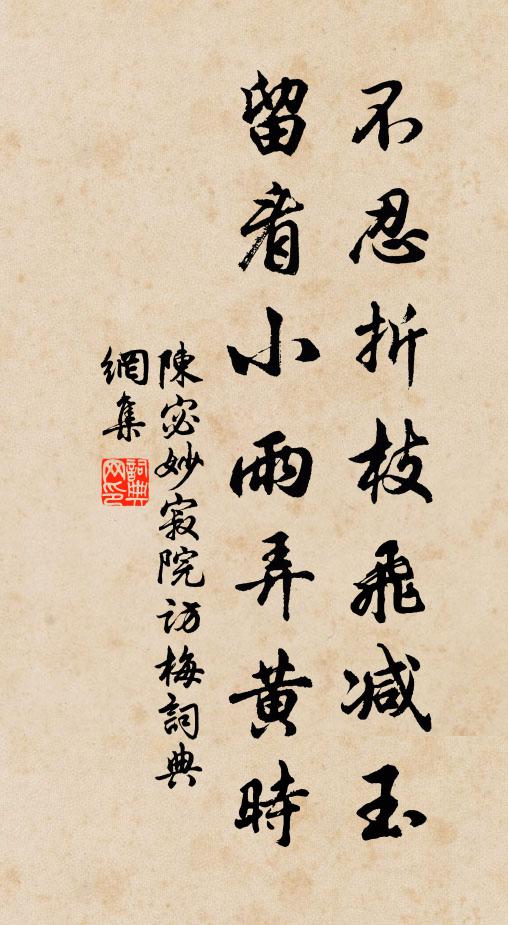 不忍折枝飛減玉
留看小雨弄黃時
陳宓妙寂院訪梅詞典
網集
詞典网印